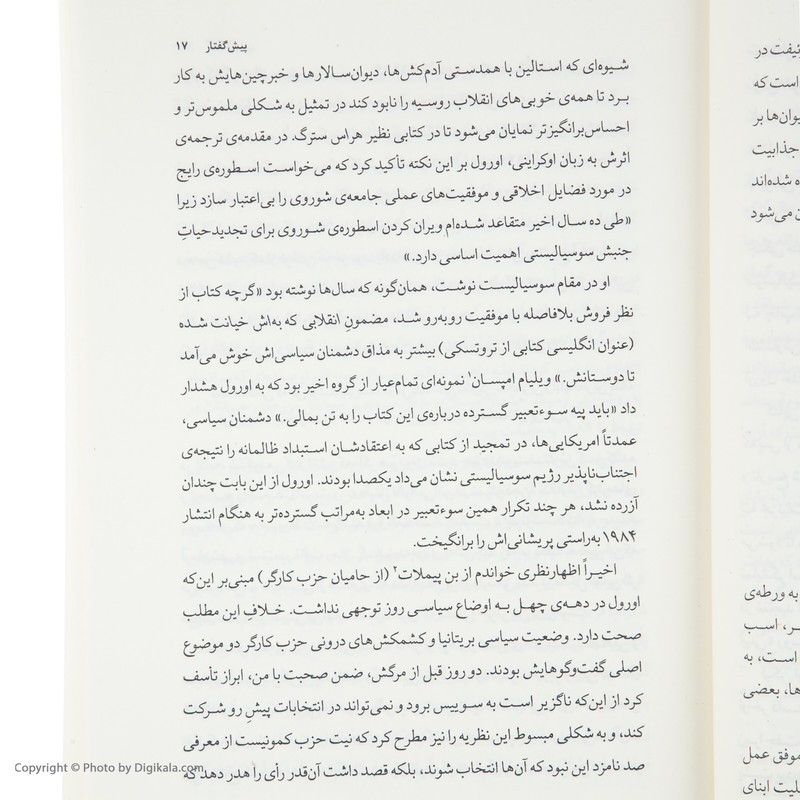 پیش‌گفتار ۱۷
شیوه‌ای که استالین با همدستی آدم‌کش‌ها، دیوان‌سالارها و خبرچین‌هایش به کار
برد تا همه‌ی خوبی‌های انقلاب روسیه را نابود کند در تمثیل به شکلی ملموس‌تر و
احساس‌برانگیزتر نمایان می‌شود تا در کتابی نظیر هراس سترگ. در مقدمه‌ی ترجمه‌ی
اثرش به زبان اوکراینی، اورول بر این نکته تأکید کرد که می‌خواست اسطوره‌ی رایج
در مورد فضایل اخلاقی و موفقیت‌های عملی جامعه‌ی شوروی را بی‌اعتبار سازد زیرا
«طی ده سال اخیر متقاعد شده‌ام ویران کردن اسطوره‌ی شوروی برای تجدیدحیاتِ
جنبش سوسیالیستی اهمیت اساسی دارد.»
او در مقام سوسیالیست نوشت، همان‌گونه که سال‌ها نوشته بود «گرچه کتاب از
نظر فروش بلافاصله با موفقیت روبه‌رو شد، مضمونِ انقلابی که به‌اش خیانت شده
(عنوان انگلیسی کتابی از تروتسکی) بیشتر به مذاق دشمنان سیاسی‌اش خوش می‌آمد
تا دوستانش.» ویلیام امپسان۱ نمونه‌ای تمام‌عیار از گروه اخیر بود که به اورول هشدار
داد «باید پیه سوءتعبیر گسترده درباره‌ی این کتاب را به تن بمالی.» دشمنان سیاسی،
عمدتاً امریکایی‌ها، در تمجید از کتابی که به اعتقادشان استبداد ظالمانه را نتیجه‌ی
اجتناب‌ناپذیر رژیم سوسیالیستی نشان می‌داد یکصدا بودند. اورول از این بابت چندان
آزرده نشد، هر چند تکرار همین سوءتعبیر در ابعاد به‌مراتب گسترده‌تر به هنگام انتشار
۱۹۸۴ به‌راستی پریشانی‌اش را برانگیخت.
اخیراً اظهارنظری خواندم از بن پیملات۲ (از حامیان حزب کارگر) مبنی‌بر این‌که
اورول در دهه‌ی چهل به اوضاع سیاسی روز توجهی نداشت. خلافِ این مطلب
صحت دارد. وضعیت سیاسی بریتانیا و کشمکش‌های درونی حزب کارگر دو موضوع
اصلی گفت‌وگوهایش بودند. دو روز قبل از مرگش، ضمن صحبت با من، ابراز تأسف
کرد از این‌که ناگزیر است به سوییس برود و نمی‌تواند در انتخابات پیشِ رو شرکت
کند، و به شکلی مبسوط این نظریه را نیز مطرح کرد که نیت حزب کمونیست از معرفی
صد نامزد این نبود که آن‌ها انتخاب شوند، بلکه قصد داشت آن‌قدر رأی را هدر دهد که
نیفت در
است که
یوان‌ها بر
جذابیت
ه شده‌اند
ن می‌شود
به ورطه‌ی
ـر، اسب
است، به
ها، بعضی
موفق عمل
لیت ابنای
Copyright © Photo by Digikala.com